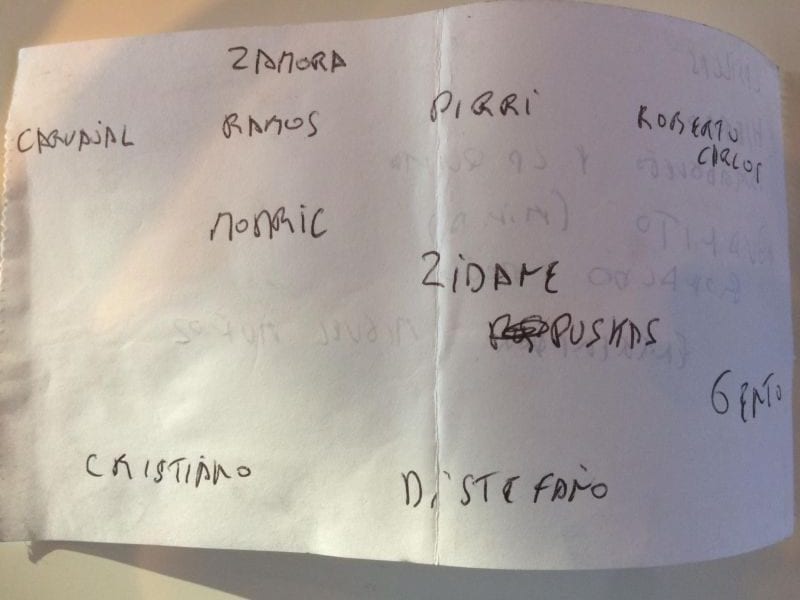 ZAMORA
CARVAJAL RAMOS PIRRI ROBERTO CARLOS
MODRIC
ZIDANE
PUSKAS
GENTO
CRISTIANO DiSTEFANO